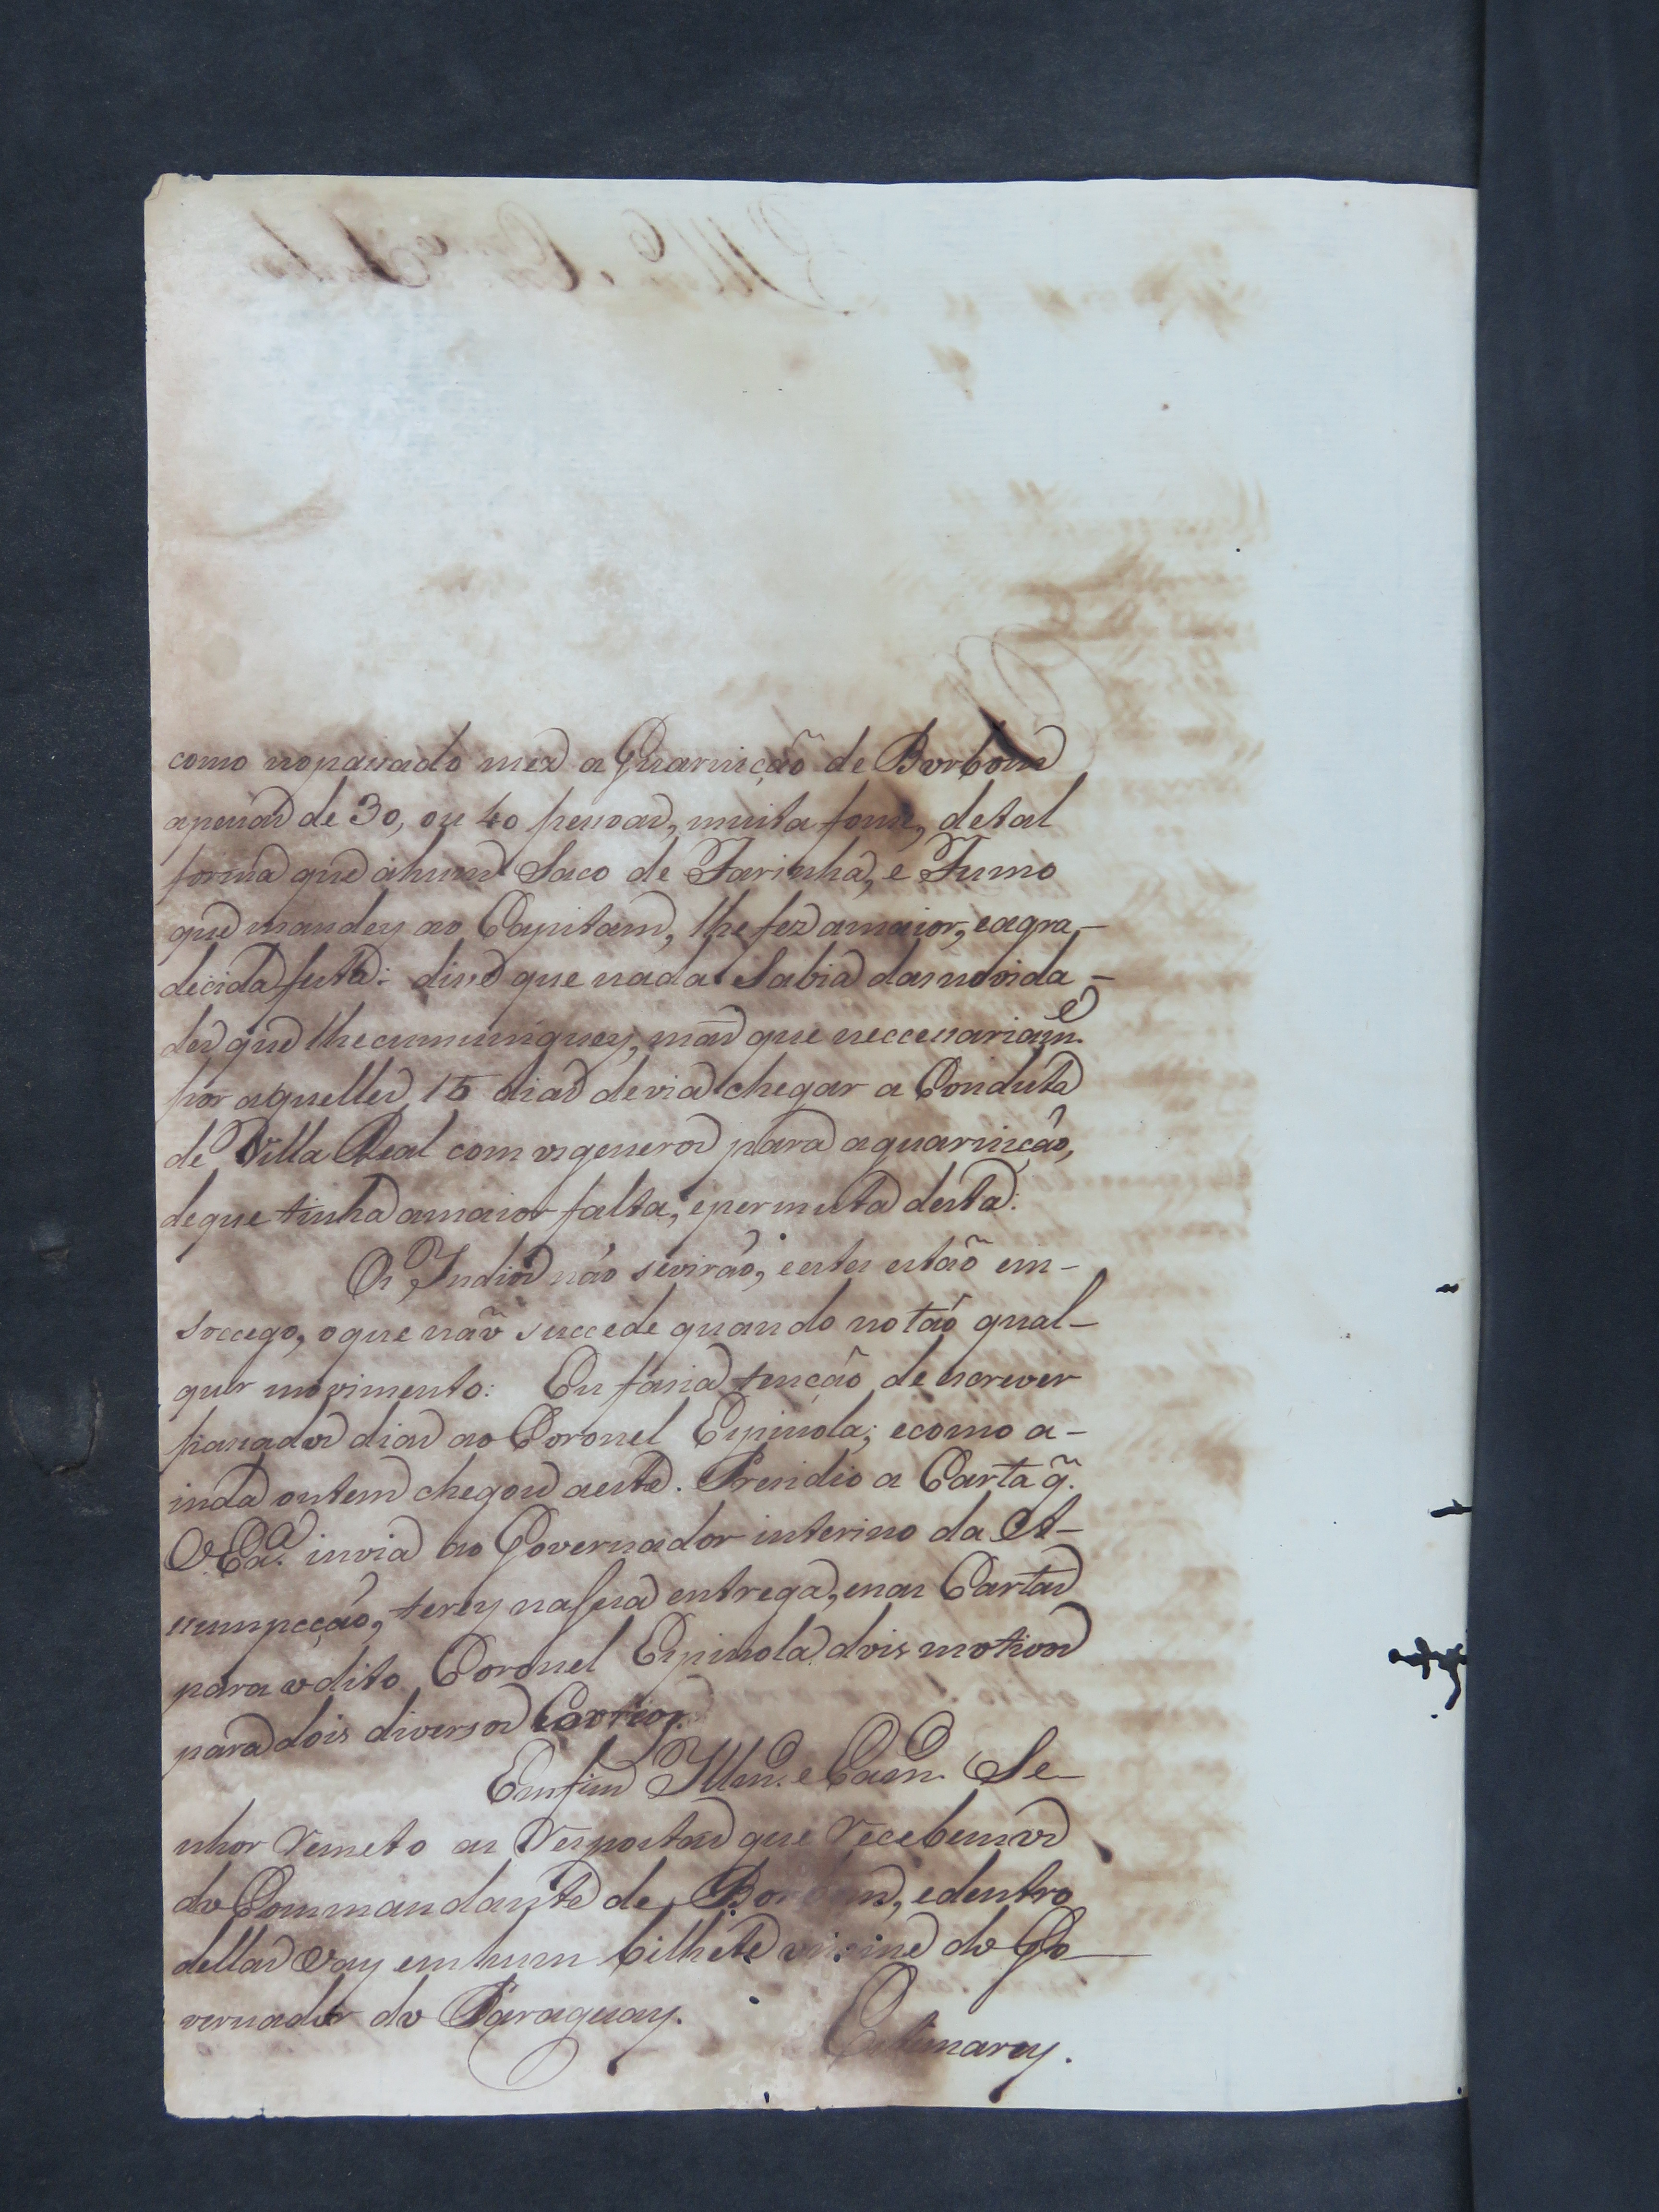 como nopassado mez a Guarnição de Borbom
apenas de 30, ou 40 pessoas, muita fome, detal
forma que ahum Saco de Farinha, e Fumo
que mandey ao Capitam, lhe fez amaior, eagra-
decida festa: disse que nada Sabia dasnovida-
des que lhecumuniquey, mas que neccessariam.e
por aquelles 15 dias devia chegar a Conduta
de Villa Real com osgeneros para aguarnição,
deque tinha amaior falta, epermuta desta:
Os Indios não sevirão, eestes estão em-
soccego, oque não succede quando notão qual-
quer movimento: Eu fasia tenção de escrever
passados dias ao Coronel Espinola; ecomo a-
inda ontem chegou aeste. Presidio a Carta q̃.
V. Ex.a invia ao Governador interino da As-
sumpcção, terey nasua entrega, enas Cartas
para odito Coronel Espinola dois motivos
para dois diversos
Emfim Illm.o e Exm.o Se-
nhor remeto as respostas que recebemos
do Commandante de Borbom, edentro
dellas vay em hum bilhete do Go-
vernador do Paraguay.
Estimarey.